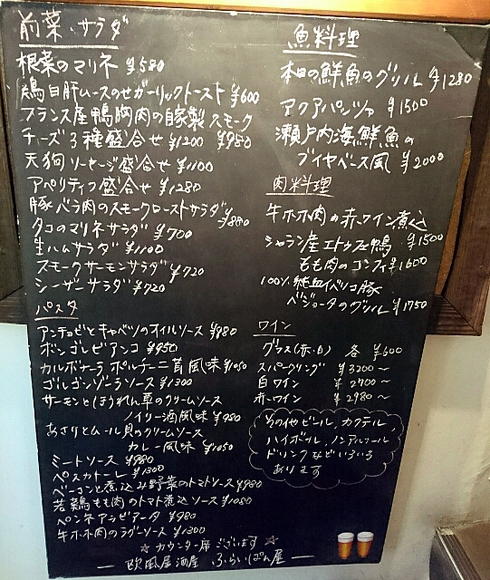 前菜・サラダ
根菜のマリネ ¥580
鶏白肝ムースのせガーリックトースト ¥600
フランス産鴨胸肉の自家製スモーク
¥980
チーズ3種盛合せ ¥1200
天狗ソーセージ盛合せ ¥1100
アペリティフ盛合せ ¥1280
豚バラ肉のスモークローストサラダ ¥880
タコのマリネサラダ ¥700
生ハムサラダ ¥1100
スモークサーモンサラダ ¥720
シーザーサラダ ¥720
パスタ
アンチョビとキャベツのオイルソース ¥880
ボンゴレビアンコ ¥950
カルボナーラ ポルチーニ茸風味 ¥1050
ゴルゴンゾーラソース ¥1300
サーモンとほうれん草のクリームソース
ノイリー酒風味 ¥980
あさりとムール貝のクリームソース
カレー風味 ¥1050
ミートソース ¥980
ペスカトーレ ¥1300
ベーコンと煮込み野菜のトマトソース ¥980
若鶏もも肉のトマト煮込ソース ¥1080
ペンネアラビアータ ¥980
牛ホホ肉のラグーソース ¥1300
魚料理
本日の鮮魚のグリル ¥1280
アクアパッツァ ¥1500
瀬戸内海鮮魚の
ブイヤベース風 ¥2000
肉料理
牛ホホ肉の赤ワイン煮込
¥1500
シャラン産エトフェ鴨
もも肉のコンフィ ¥1600
100%純血イベリコ豚
ベジョータのグリル ¥1750
ワイン
グラス(赤・白) 各 ¥600
スパークリング ¥3200〜
白ワイン ¥2700〜
赤ワイン ¥2980〜
その他ビール、カクテル
ハイボール、ノンアルコール
ドリンクなどいろいろ
あります
☆カウンター席ございます☆
— 欧風居酒屋 ふらいぱん屋 —